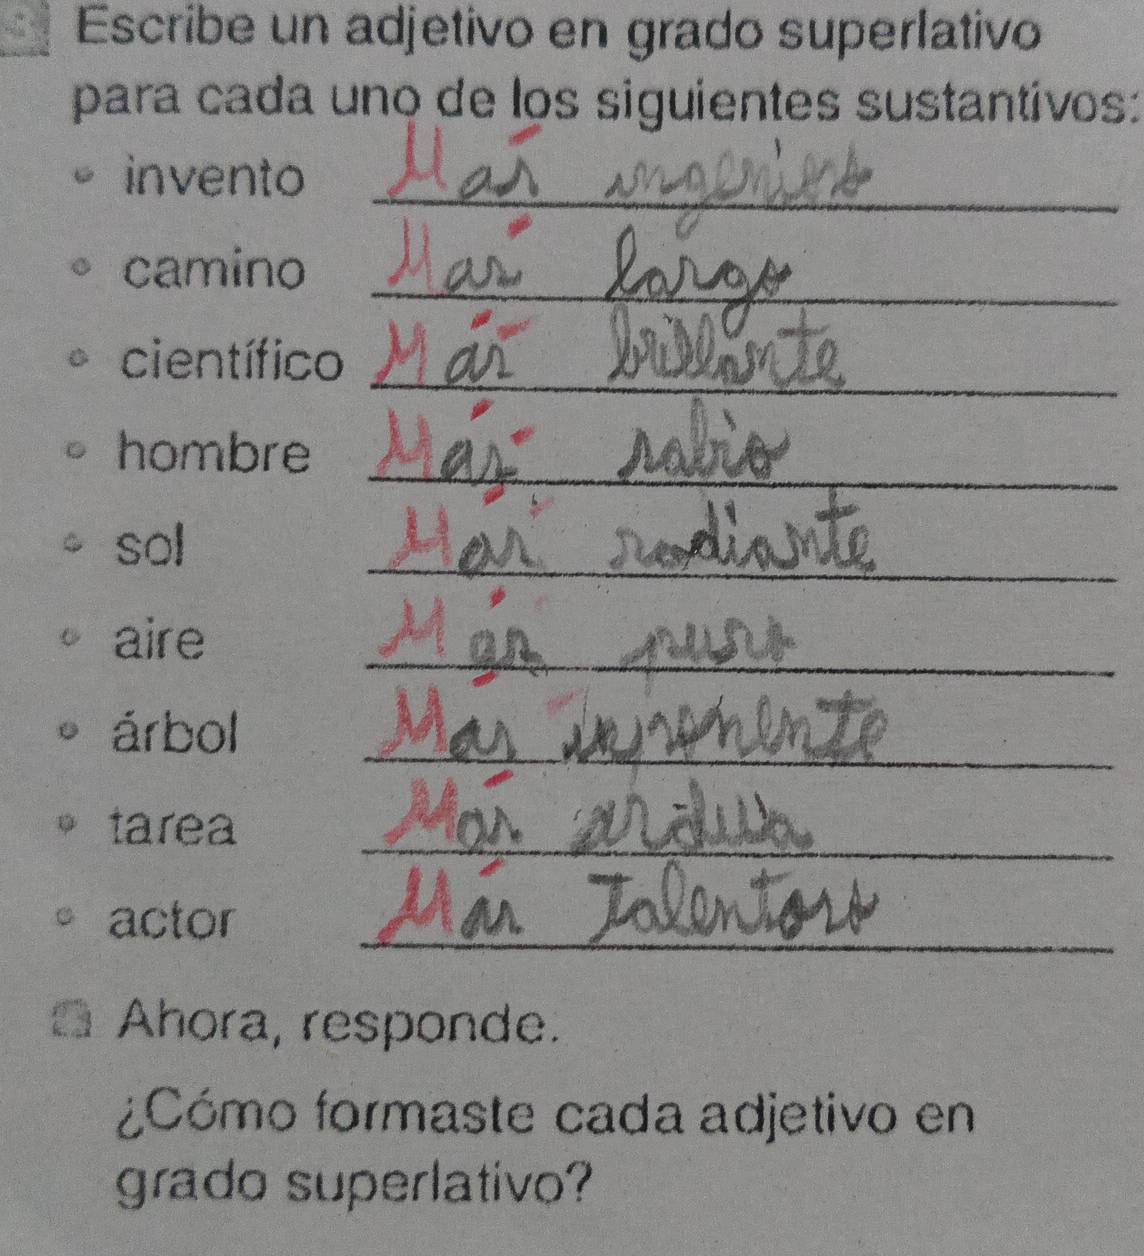 Escribe un adjetivo en grado superlativo
para cada uno de los siguientes sustantivos:
invento Más ingenioso
camino Más largo
científico Más brillante
hombre Más sabio
sol Más radiante
aire Más puro
árbol Más imponente
tarea Más ardua
actor Más Talentoso
Ahora, responde.
¿Cómo formaste cada adjetivo en
grado superlativo?